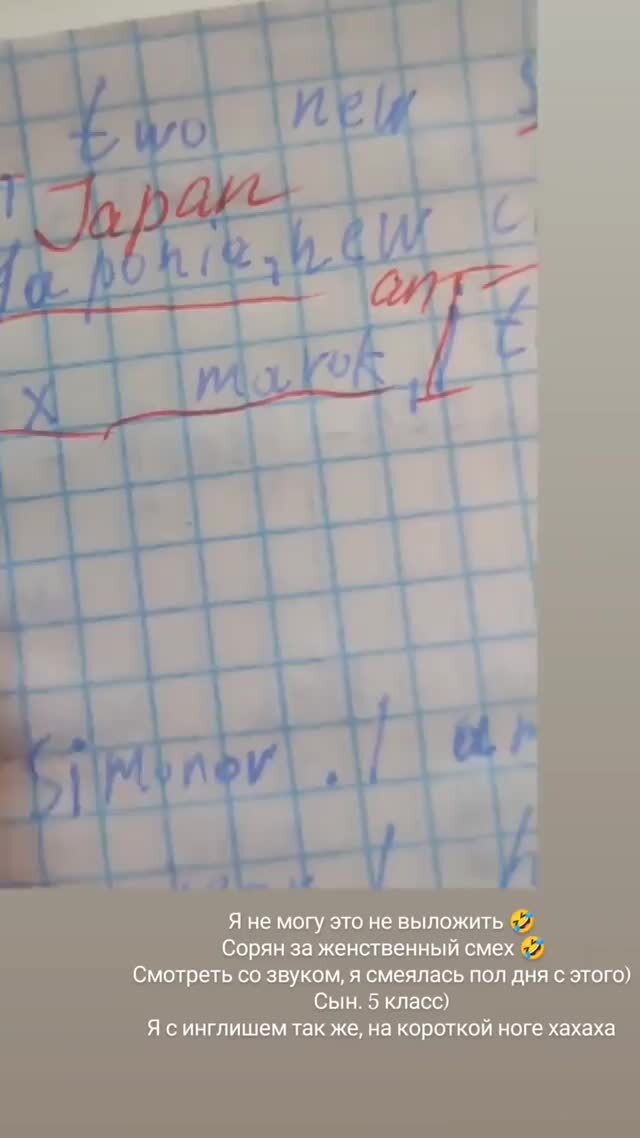 two new
Japan
Japonia, new c
an
x marok, I t
Simonov. I am
I h
Я не могу это не выложить 🤣
Сорян за женственный смех 🤣
Смотреть со звуком, я смеялась пол дня с этого)
Сын. 5 класс)
Я с инглишем так же, на короткой ноге хахаха